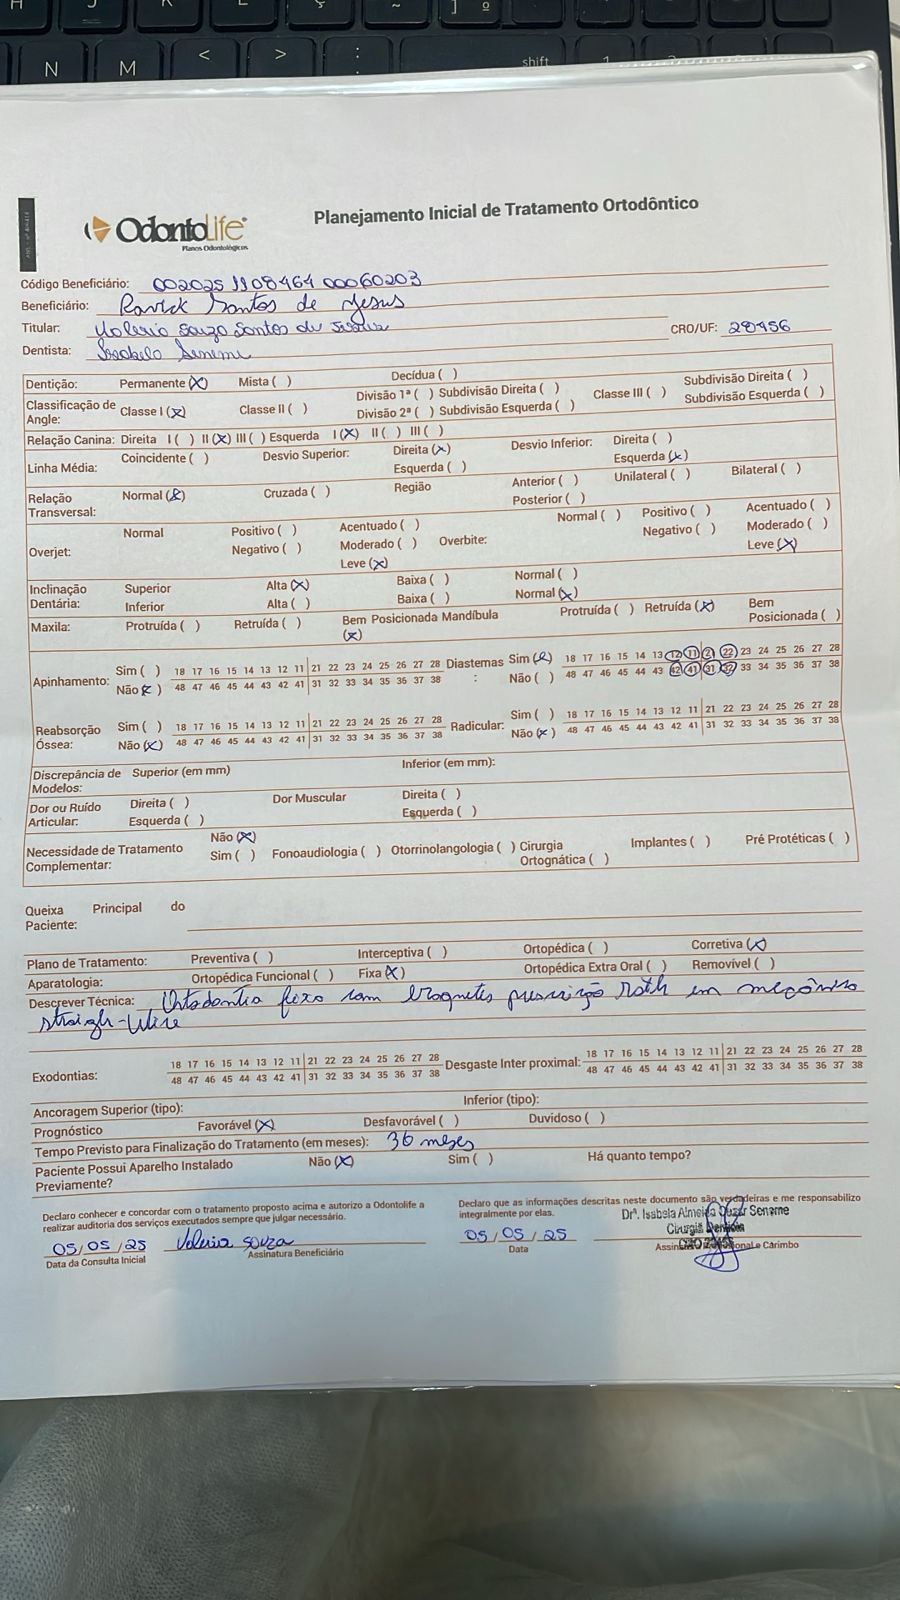 N M < > : shift
Planejamento Inicial de Tratamento Ortodôntico
OdontoLife
Planos Odontológicos
Código Beneficiário: 002025 1108464 00060203
Beneficiário: Ravick Santos de Jesus
Titular: Valeria Souza Santos de Jesus CRO/UF: 28456
Dentista: Isabela Seneme
Dentição: Permanente (x) Mista ( ) Decídua ( )
Classificação de Angle: Classe I (x) Classe II ( ) Divisão 1ª ( ) Subdivisão Direita ( ) Classe III ( ) Subdivisão Direita ( )
Divisão 2ª ( ) Subdivisão Esquerda ( ) Subdivisão Esquerda ( )
Relação Canina: Direita I ( ) II (x) III ( ) Esquerda I (x) II ( ) III ( )
Linha Média: Coincidente ( ) Desvio Superior: Direita (x) Desvio Inferior: Direita ( )
Esquerda ( ) Esquerda (x)
Relação Transversal: Normal (x) Cruzada ( ) Região Anterior ( ) Unilateral ( ) Bilateral ( )
Posterior ( )
Overjet: Normal Positivo ( ) Acentuado ( ) Overbite: Normal ( ) Positivo ( ) Acentuado ( )
Negativo ( ) Moderado ( ) Negativo ( ) Moderado ( )
Leve (x) Leve (x)
Inclinação Dentária: Superior Alta (x) Baixa ( ) Normal ( )
Inferior Alta ( ) Baixa ( ) Normal (x)
Maxila: Protruída ( ) Retruída ( ) Bem Posicionada (x) Mandíbula Protruída ( ) Retruída (x) Bem Posicionada ( )
Apinhamento: Sim ( ) 18 17 16 15 14 13 12 11 21 22 23 24 25 26 27 28 Diastemas: Sim (x) 18 17 16 15 14 13 12 11 21 22 23 24 25 26 27 28
Não (x) 48 47 46 45 44 43 42 41 31 32 33 34 35 36 37 38 Não ( ) 48 47 46 45 44 43 42 41 31 32 33 34 35 36 37 38
Reabsorção Óssea: Sim ( ) 18 17 16 15 14 13 12 11 21 22 23 24 25 26 27 28 Radicular: Sim ( ) 18 17 16 15 14 13 12 11 21 22 23 24 25 26 27 28
Não (x) 48 47 46 45 44 43 42 41 31 32 33 34 35 36 37 38 Não (x) 48 47 46 45 44 43 42 41 31 32 33 34 35 36 37 38
Discrepância de Modelos: Superior (em mm) Inferior (em mm):
Dor ou Ruído Articular: Direita ( ) Dor Muscular Direita ( )
Esquerda ( ) Esquerda ( )
Necessidade de Tratamento Complementar: Não (x)
Sim ( ) Fonoaudiologia ( ) Otorrinolangologia ( ) Cirurgia Ortognática ( ) Implantes ( ) Pré Protéticas ( )
Queixa Principal do Paciente:
Plano de Tratamento: Preventiva ( ) Interceptiva ( ) Ortopédica ( ) Corretiva (x)
Aparatologia: Ortopédica Funcional ( ) Fixa (x) Ortopédica Extra Oral ( ) Removível ( )
Descrever Técnica: Ortodontia fixa com braquetes prescrição Roth em mecânica
straigh-Wire
Exodontias: 18 17 16 15 14 13 12 11 21 22 23 24 25 26 27 28 Desgaste Inter proximal: 18 17 16 15 14 13 12 11 21 22 23 24 25 26 27 28
48 47 46 45 44 43 42 41 31 32 33 34 35 36 37 38 48 47 46 45 44 43 42 41 31 32 33 34 35 36 37 38
Ancoragem Superior (tipo): Inferior (tipo):
Prognóstico Favorável (x) Desfavorável ( ) Duvidoso ( )
Tempo Previsto para Finalização do Tratamento (em meses): 36 meses
Paciente Possui Aparelho Instalado Previamente? Não (x) Sim ( ) Há quanto tempo?
Declaro conhecer e concordar com o tratamento proposto acima e autorizo a Odontolife a
realizar auditoria dos serviços executados sempre que julgar necessário.
05/05/25 Valeria Souza
Data da Consulta Inicial Assinatura Beneficiário
Declaro que as informações descritas neste documento são verdadeiras e me responsabilizo
integralmente por elas.
Drª. Isabela Almeida Seneme
Cirurgiã Dentista
05/05/25
Data Carimbo